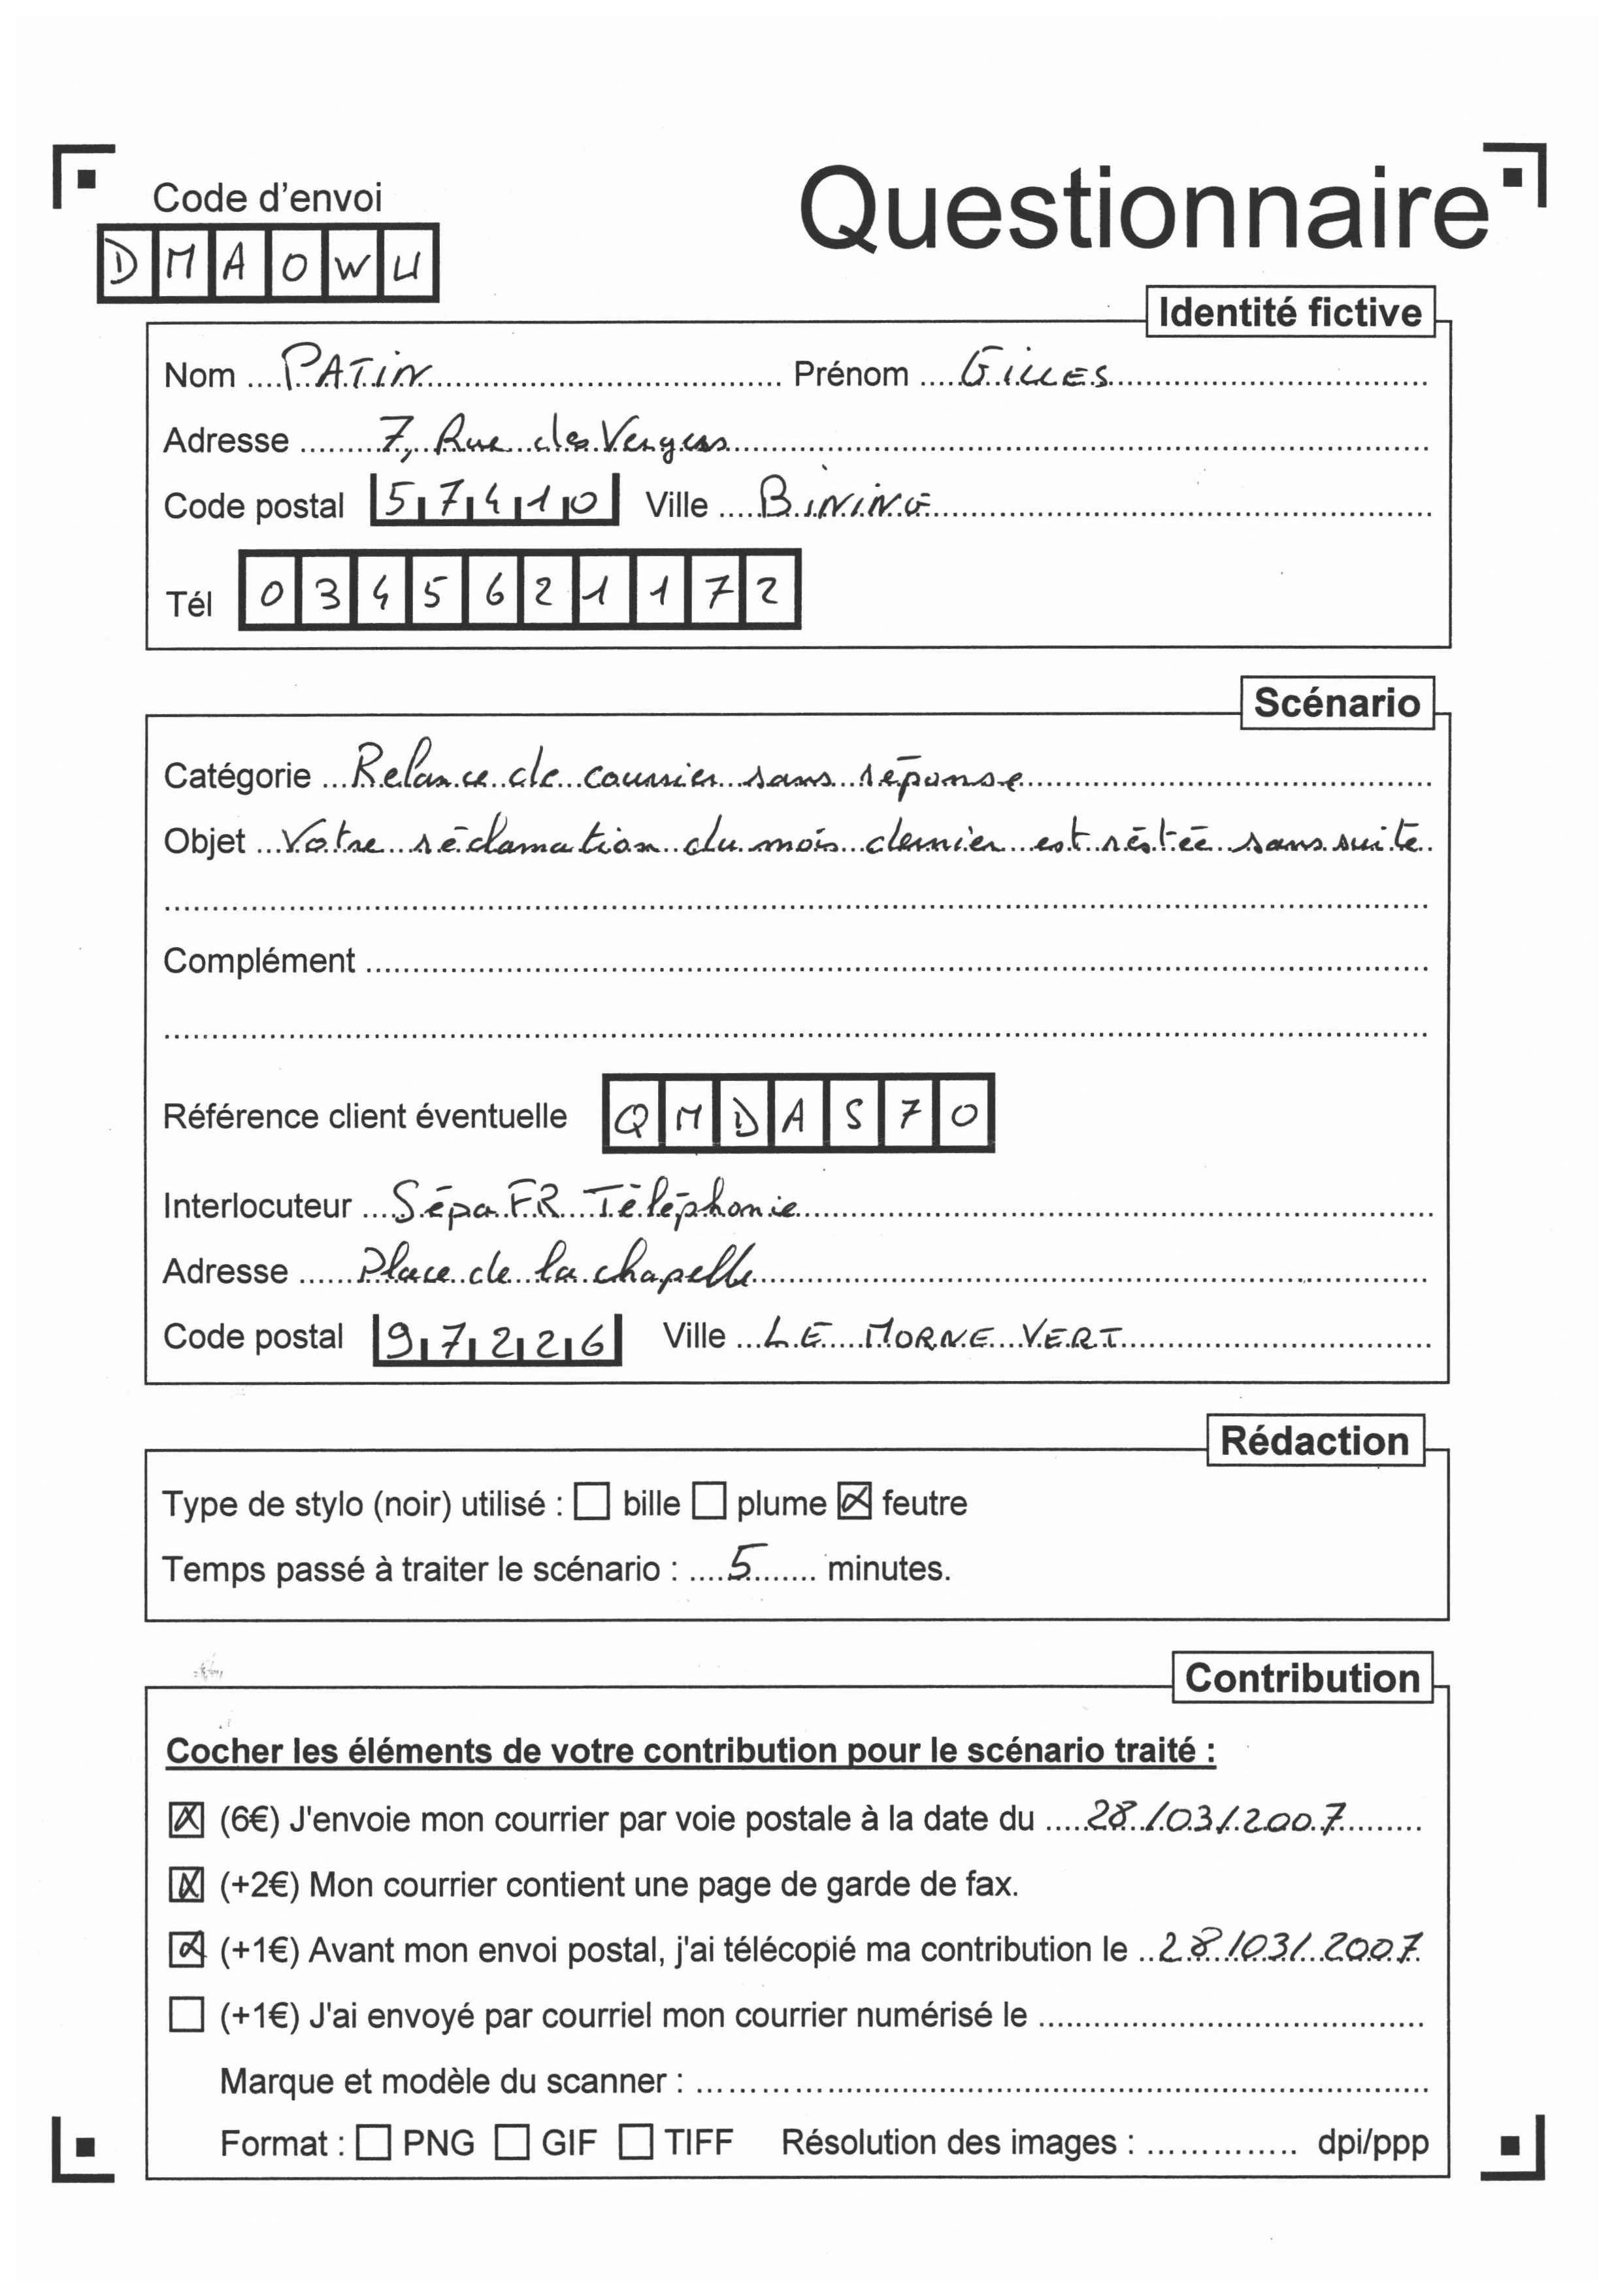 Questionnaire
Code d'envoi
DMAOWU
Identité fictive
Nom PATIN Prénom GILLES
Adresse 7, Rue des Vergers
Code postal 57410 Ville BINING
Tél 0345621172
Scénario
Catégorie Relance de courrier sans réponse
Objet Votre réclamation du mois dernier est réstée sans suite
Complément
Référence client éventuelle QMDAS70
Interlocuteur Sépa FR Téléphonie
Adresse Place de la chapelle
Code postal 97226 Ville LE MORNE VERT
Rédaction
Type de stylo (noir) utilisé : ☐ bille ☐ plume ☒ feutre
Temps passé à traiter le scénario : 5 minutes.
Contribution
Cocher les éléments de votre contribution pour le scénario traité :
☒ (6€) J'envoie mon courrier par voie postale à la date du 28/03/2007
☒ (+2€) Mon courrier contient une page de garde de fax.
☒ (+1€) Avant mon envoi postal, j'ai télécopié ma contribution le 28/03/2007
☐ (+1€) J'ai envoyé par courriel mon courrier numérisé le
Marque et modèle du scanner :
Format : ☐ PNG ☐ GIF ☐ TIFF Résolution des images : dpi/ppp